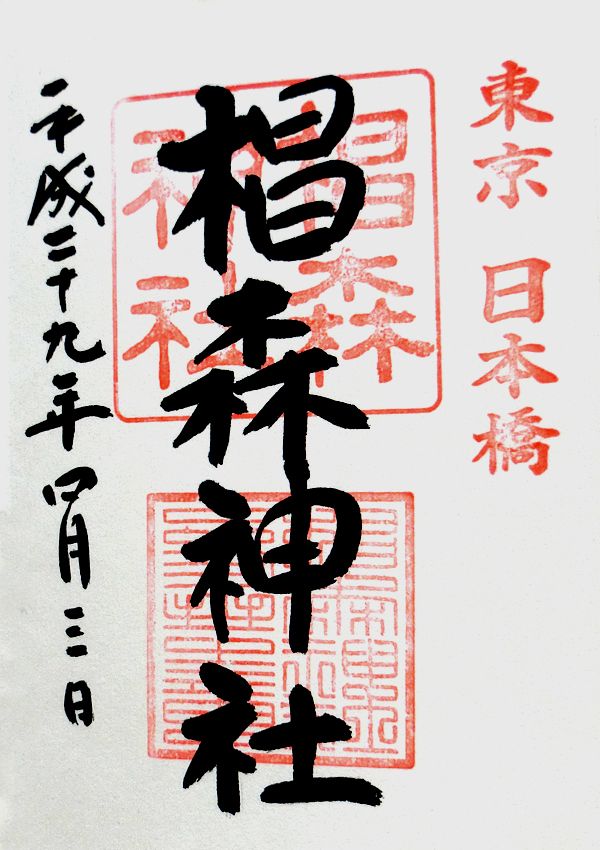 東京 日本橋
椙森
神社
椙森神社
平成二十九年四月三日